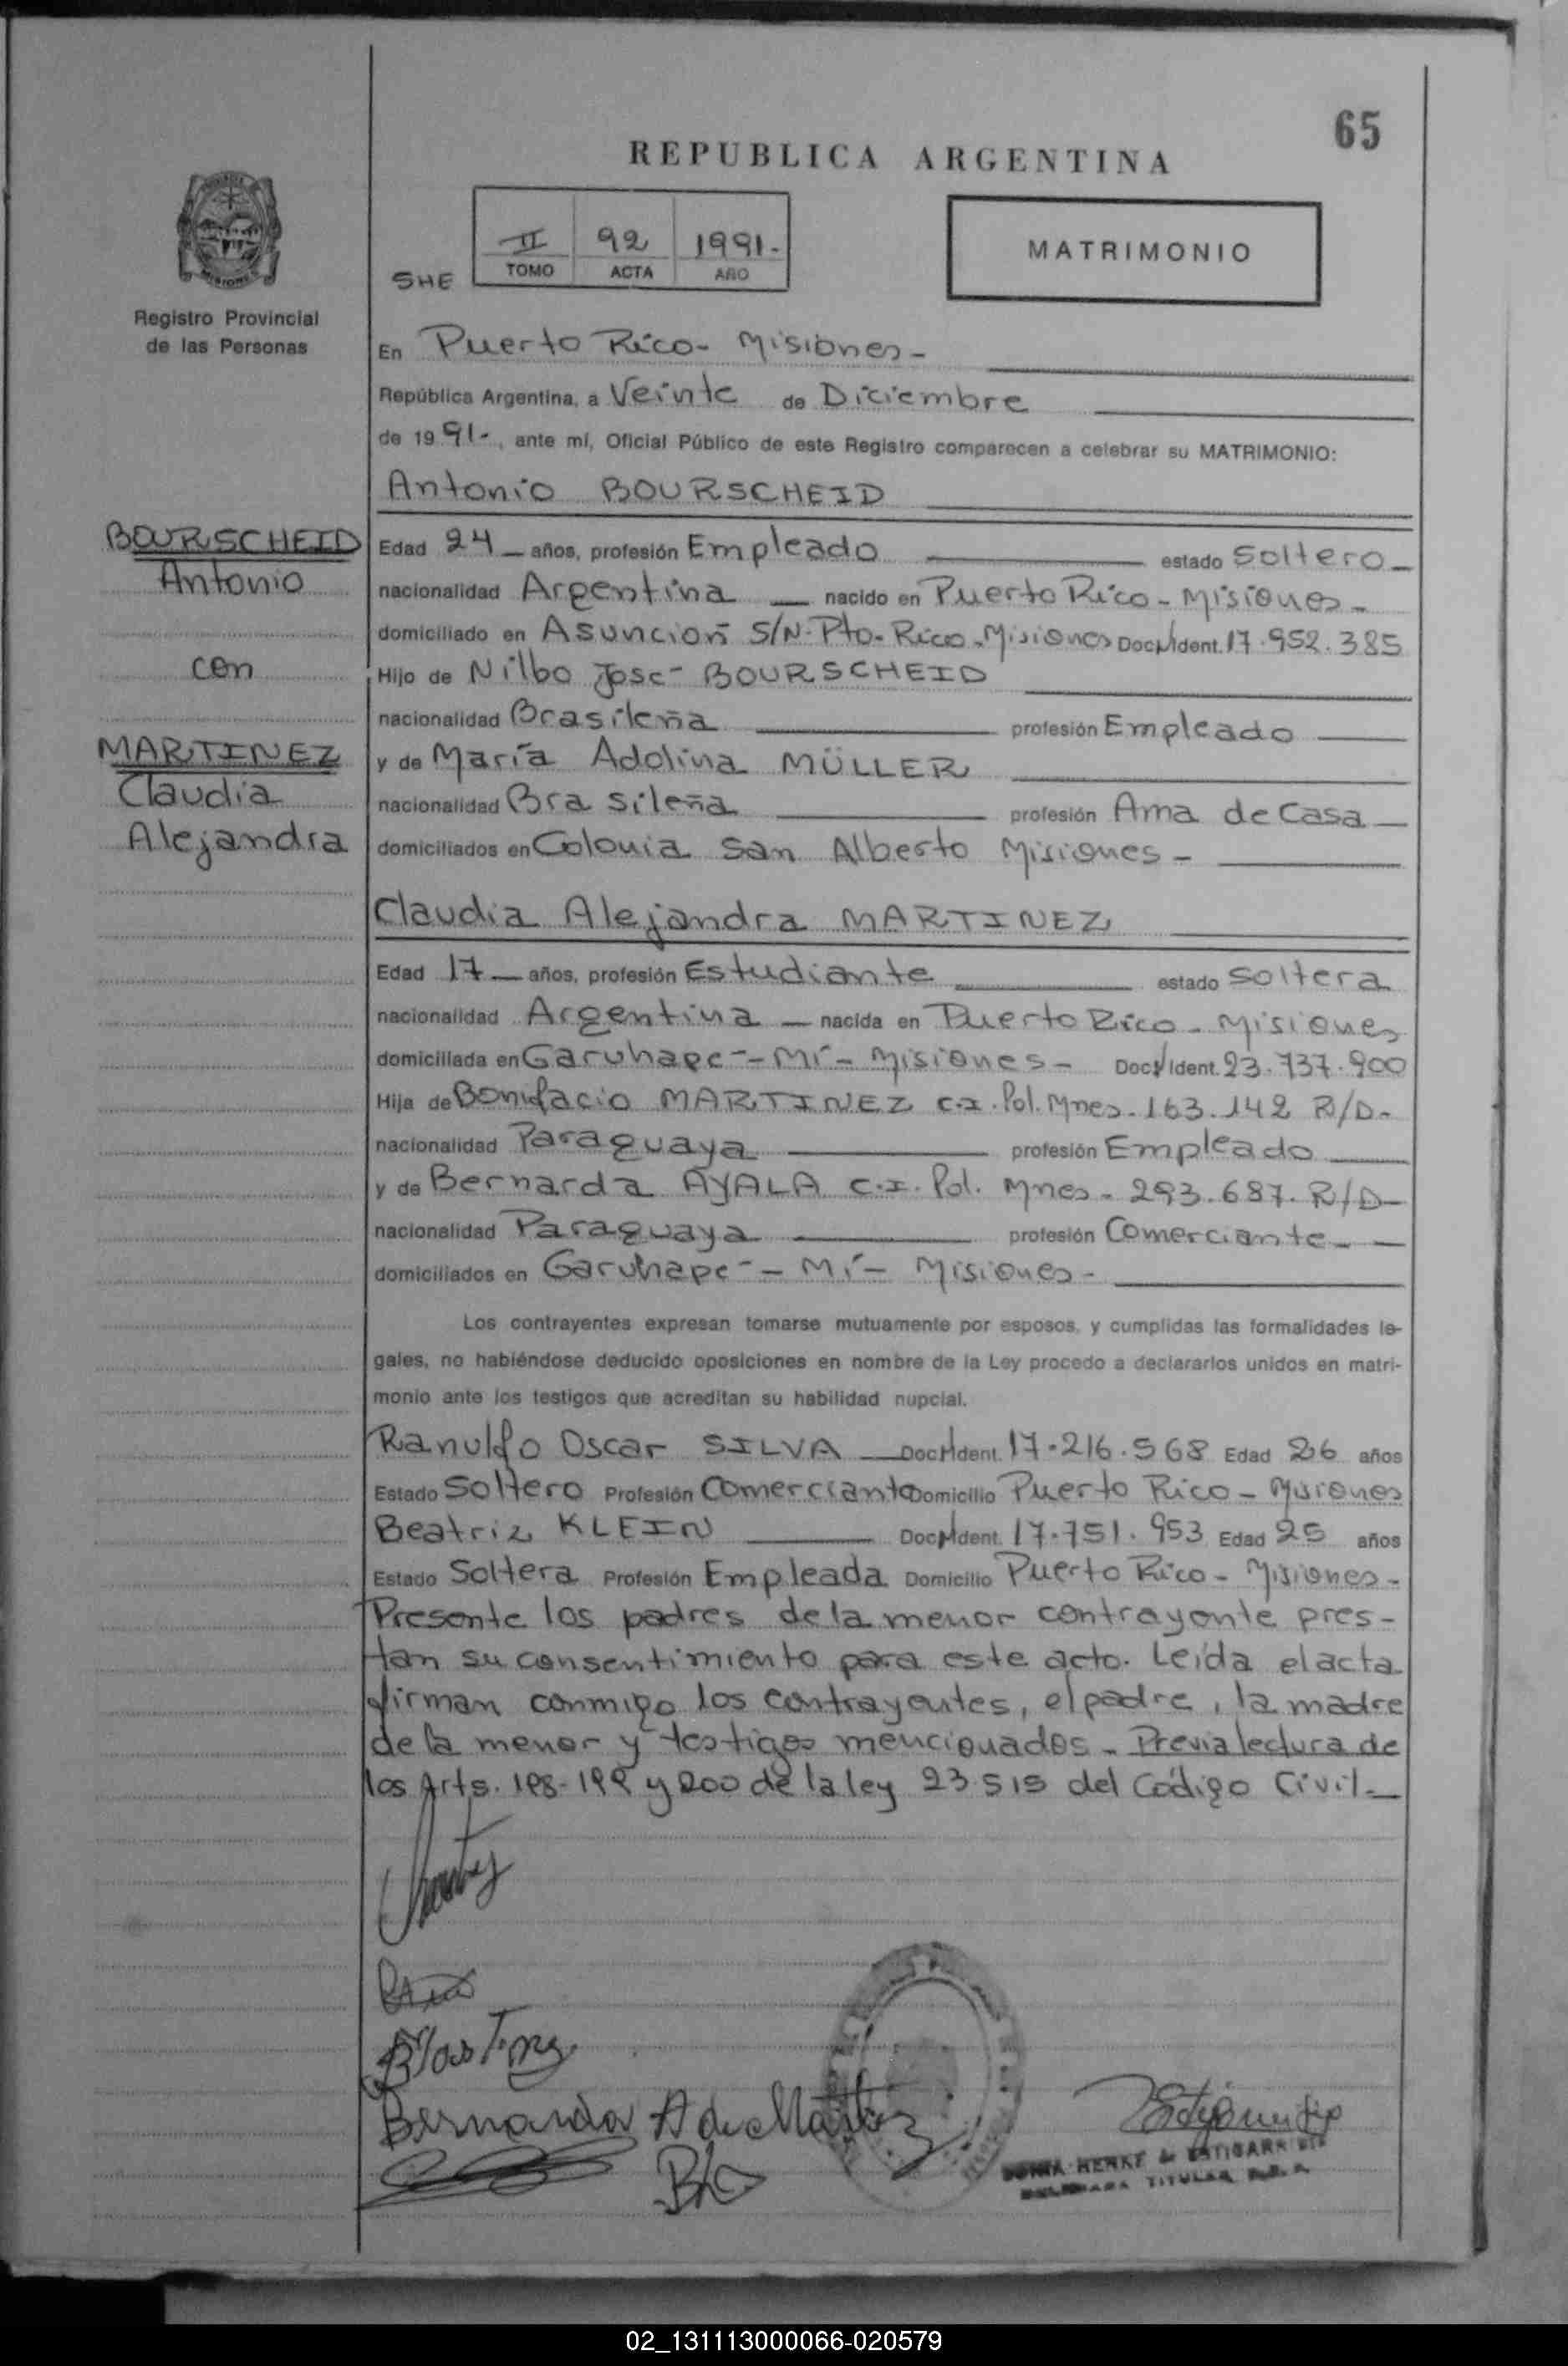 65
REPUBLICA ARGENTINA
II 92 1991.-
TOMO ACTA AÑO
SHE
MATRIMONIO
Registro Provincial
de las Personas
En Puerto Rico- Misiones-
República Argentina, a Veinte de Diciembre
de 19 91-, ante mí, Oficial Público de este Registro comparecen a celebrar su MATRIMONIO:
Antonio BOURSCHEID
BOURSCHEID
Antonio
con
MARTINEZ
Claudia
Alejandra
Edad 24 años, profesión Empleado estado Soltero
nacionalidad Argentina nacido en Puerto Rico - Misiones-
domiciliado en Asunción S/N- Pto- Rico-Misiones Doc. Ident. 17.952.385
Hijo de Nilbo José BOURSCHEID
nacionalidad Brasileña profesión Empleado
y de María Adolina MÜLLER
nacionalidad Brasileña profesión Ama de Casa
domiciliados en Colonia San Alberto Misiones-
Claudia Alejandra MARTINEZ
Edad 17 años, profesión Estudiante estado Soltera
nacionalidad Argentina nacida en Puerto Rico - Misiones
domiciliada en Garuhapé-Mí- Misiones- Doc. Ident. 23.737.900
Hija de Bonifacio MARTINEZ C.I. Pol. Mnes- 163.142 R/D-
nacionalidad Paraguaya profesión Empleado
y de Bernarda AYALA C.I. Pol. Mnes- 293.687- R/D-
nacionalidad Paraguaya profesión Comerciante-
domiciliados en Garuhapé - Mí- Misiones-
Los contrayentes expresan tomarse mutuamente por esposos, y cumplidas las formalidades le-
gales, no habiéndose deducido oposiciones en nombre de la Ley procedo a declararlos unidos en matri-
monio ante los testigos que acreditan su habilidad nupcial.
Ranulfo Oscar SILVA Doc. Ident. 17.216.568 Edad 26 años
Estado Soltero Profesión Comerciante Domicilio Puerto Rico - Misiones
Beatriz KLEIN Doc. Ident. 17.751.953 Edad 25 años
Estado Soltera Profesión Empleada Domicilio Puerto Rico - Misiones-
Presente los padres de la menor contrayente pres-
tan su consentimiento para este acto. Leída el acta
firman conmigo los contrayentes, el padre, la madre
de la menor y testigos mencionados- Previa lectura de
los Arts. 198-199 y 200 de la ley 23.515 del Código Civil-
Bernarda A de Martinez
HENKE de ESTIGARRIBIA
TITULAR
02_131113000066-020579